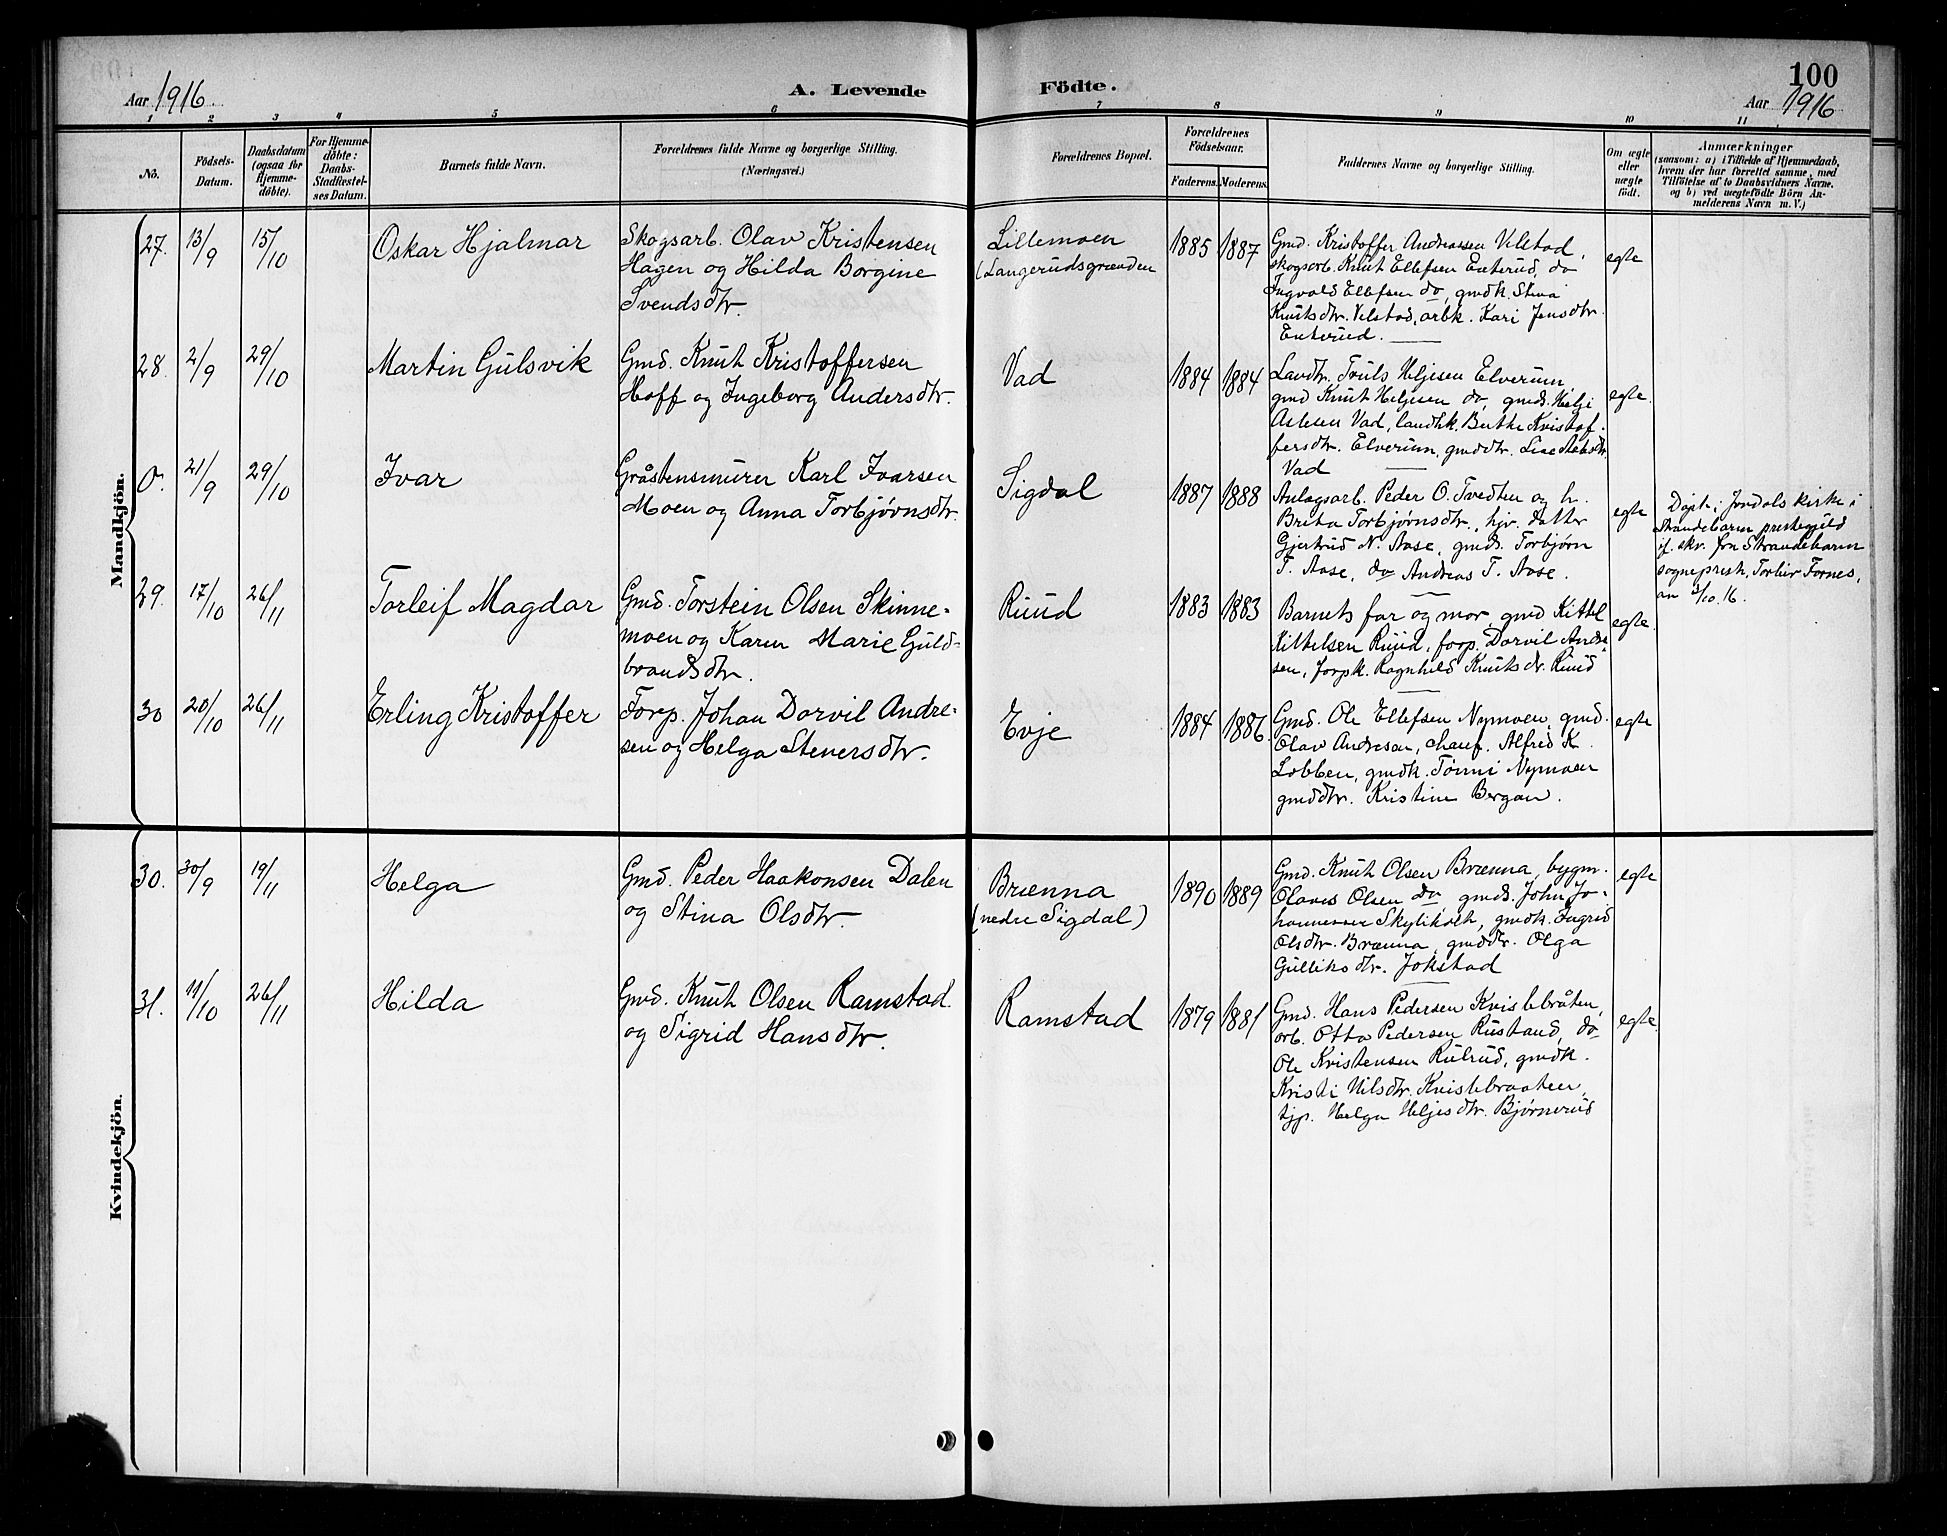 100
Aar 1916.
A. Levende
Födte.
Aar 1916
1 2 3 4 5 6 7 8 9 10 11
No.
Födsels-
Datum.
Daabsdatum
(ogsaa for
Hjemme-
döbte).
For Hjemme-
döbte:
Daabs-
Stadfæstel-
ses Datum.
Barnets fulde Navn.
Forældrenes fulde Navne og borgerlige Stilling.
(Næringsvei.)
Forældrenes Bopæl.
Forældrenes
Födselsaar.
Faderens. Moderens.
Faddernes Navne og borgerlige Stilling.
Om ægte
eller
uægte
födt.
Anmærkninger
(saasom: a) i Tilfælde af Hjemmedaab,
hvem der har forrettet samme, med
Tilföielse af to Daabsvidners Navne.
og b) ved uægtefödte Börn An-
melderens Navn m. V.)
Mandkjön.
27. 13/9 15/10 Oskar Hjalmar
Skogsarb. Olav Kristensen
Hagen og Hilda Borgine
Svendsdtr.
Lillemoen
(Langerudsgrænden
1885 1887
Gmd. Kristoffer Andreassen Velstad,
skogsarb. Knut Ellefsen Enterud, do
Ingvald Ellefsen do, gmdk. Stina
Knutsdtr. Velstad, arbk. Kari Jensdtr.
Enterud.
egte
28. 2/9 29/10 Martin Gulsvik
Gmd. Knut Kristoffersen
Hoff og Ingeborg Andersdtr.
Vad
1884 1884
Landh. Truls Heljesen Elverum,
gmd Knut Heljesen do, gmds. Helje
Aslesen Vad, landhk. Berthe Kristof-
fersdtr. Elverum, gmddtr. Lise Aslesdtr.
Vad
egte.
0. 21/9 29/10 Ivar
Gråstensmurer Karl Ivarsen
Moen og Anna Torbjørnsdtr.
Sigdal
1887 1888
Anlagsarb. Peder O. Tvedten og h.
Brita Torbjørnsdtr., hjv. datter
Gjertrud N. Aase, gmds. Torbjørn
T. Aase, do Andreas T. Aase.
egte
Døpt i Jondals kirke i
Strandebarm prestegjeld
if. skr. fra Strandebarm
sogneprest, Torleiv Fornes,
an /10.16.
29. 17/10 26/11 Torleif Magdar
Gmd. Torstein Olsen Skinne-
moen og Karen Marie Guld-
brandsdtr.
Ruud
1883 1883
Barnets far og mor, gmd Kittel
Kittelsen Ruud, forp. Dorvil Andre-
sen, forpk. Ragnhild Knutsdr. Ruud
egte.
30 20/10 26/11 Erling Kristoffer
Forp. Johan Dorvil Andre-
sen og Helga Stenersdtr.
Evje
1884 1886.
Gmd. Ole Ellefsen Nymoen, gmd.
Olav Andresen, chauf. Alfred K.
Lobben, gmdk. Tonni Nymoen
gmddtr. Kristine Bergan.
egte
Kvindekjön.
30. 30/9 19/11 Helga
Gmd. Peder Haakonsen Dalen
og Stina Olsdtr.
Brænna
(nedre Sigdal)
1890 1889
Gmd. Knut Olsen Brænna, bygm.
Olaves Olsen do, gmds. John Jo-
hannessen Skylikolt, gmdk. Ingrid
Olsdtr. Brænna, gmddtr. Olga
Gulliksdtr. Jokstad
egte
31. 11/10 26/11 Hilda
Gmd. Knut Olsen Ramstad
og Sigrid Hansdtr.
Ramstad
1879 1881
Gmd. Hans Pedersen Kvislebråten,
arb. Otto Pedersen Rustand, do
Ole Kristensen Rulrud, gmdk.
Kristi Nilsdtr. Kvislebraaten,
tjp. Helga Heljesdtr. Bjørnerud
egte.